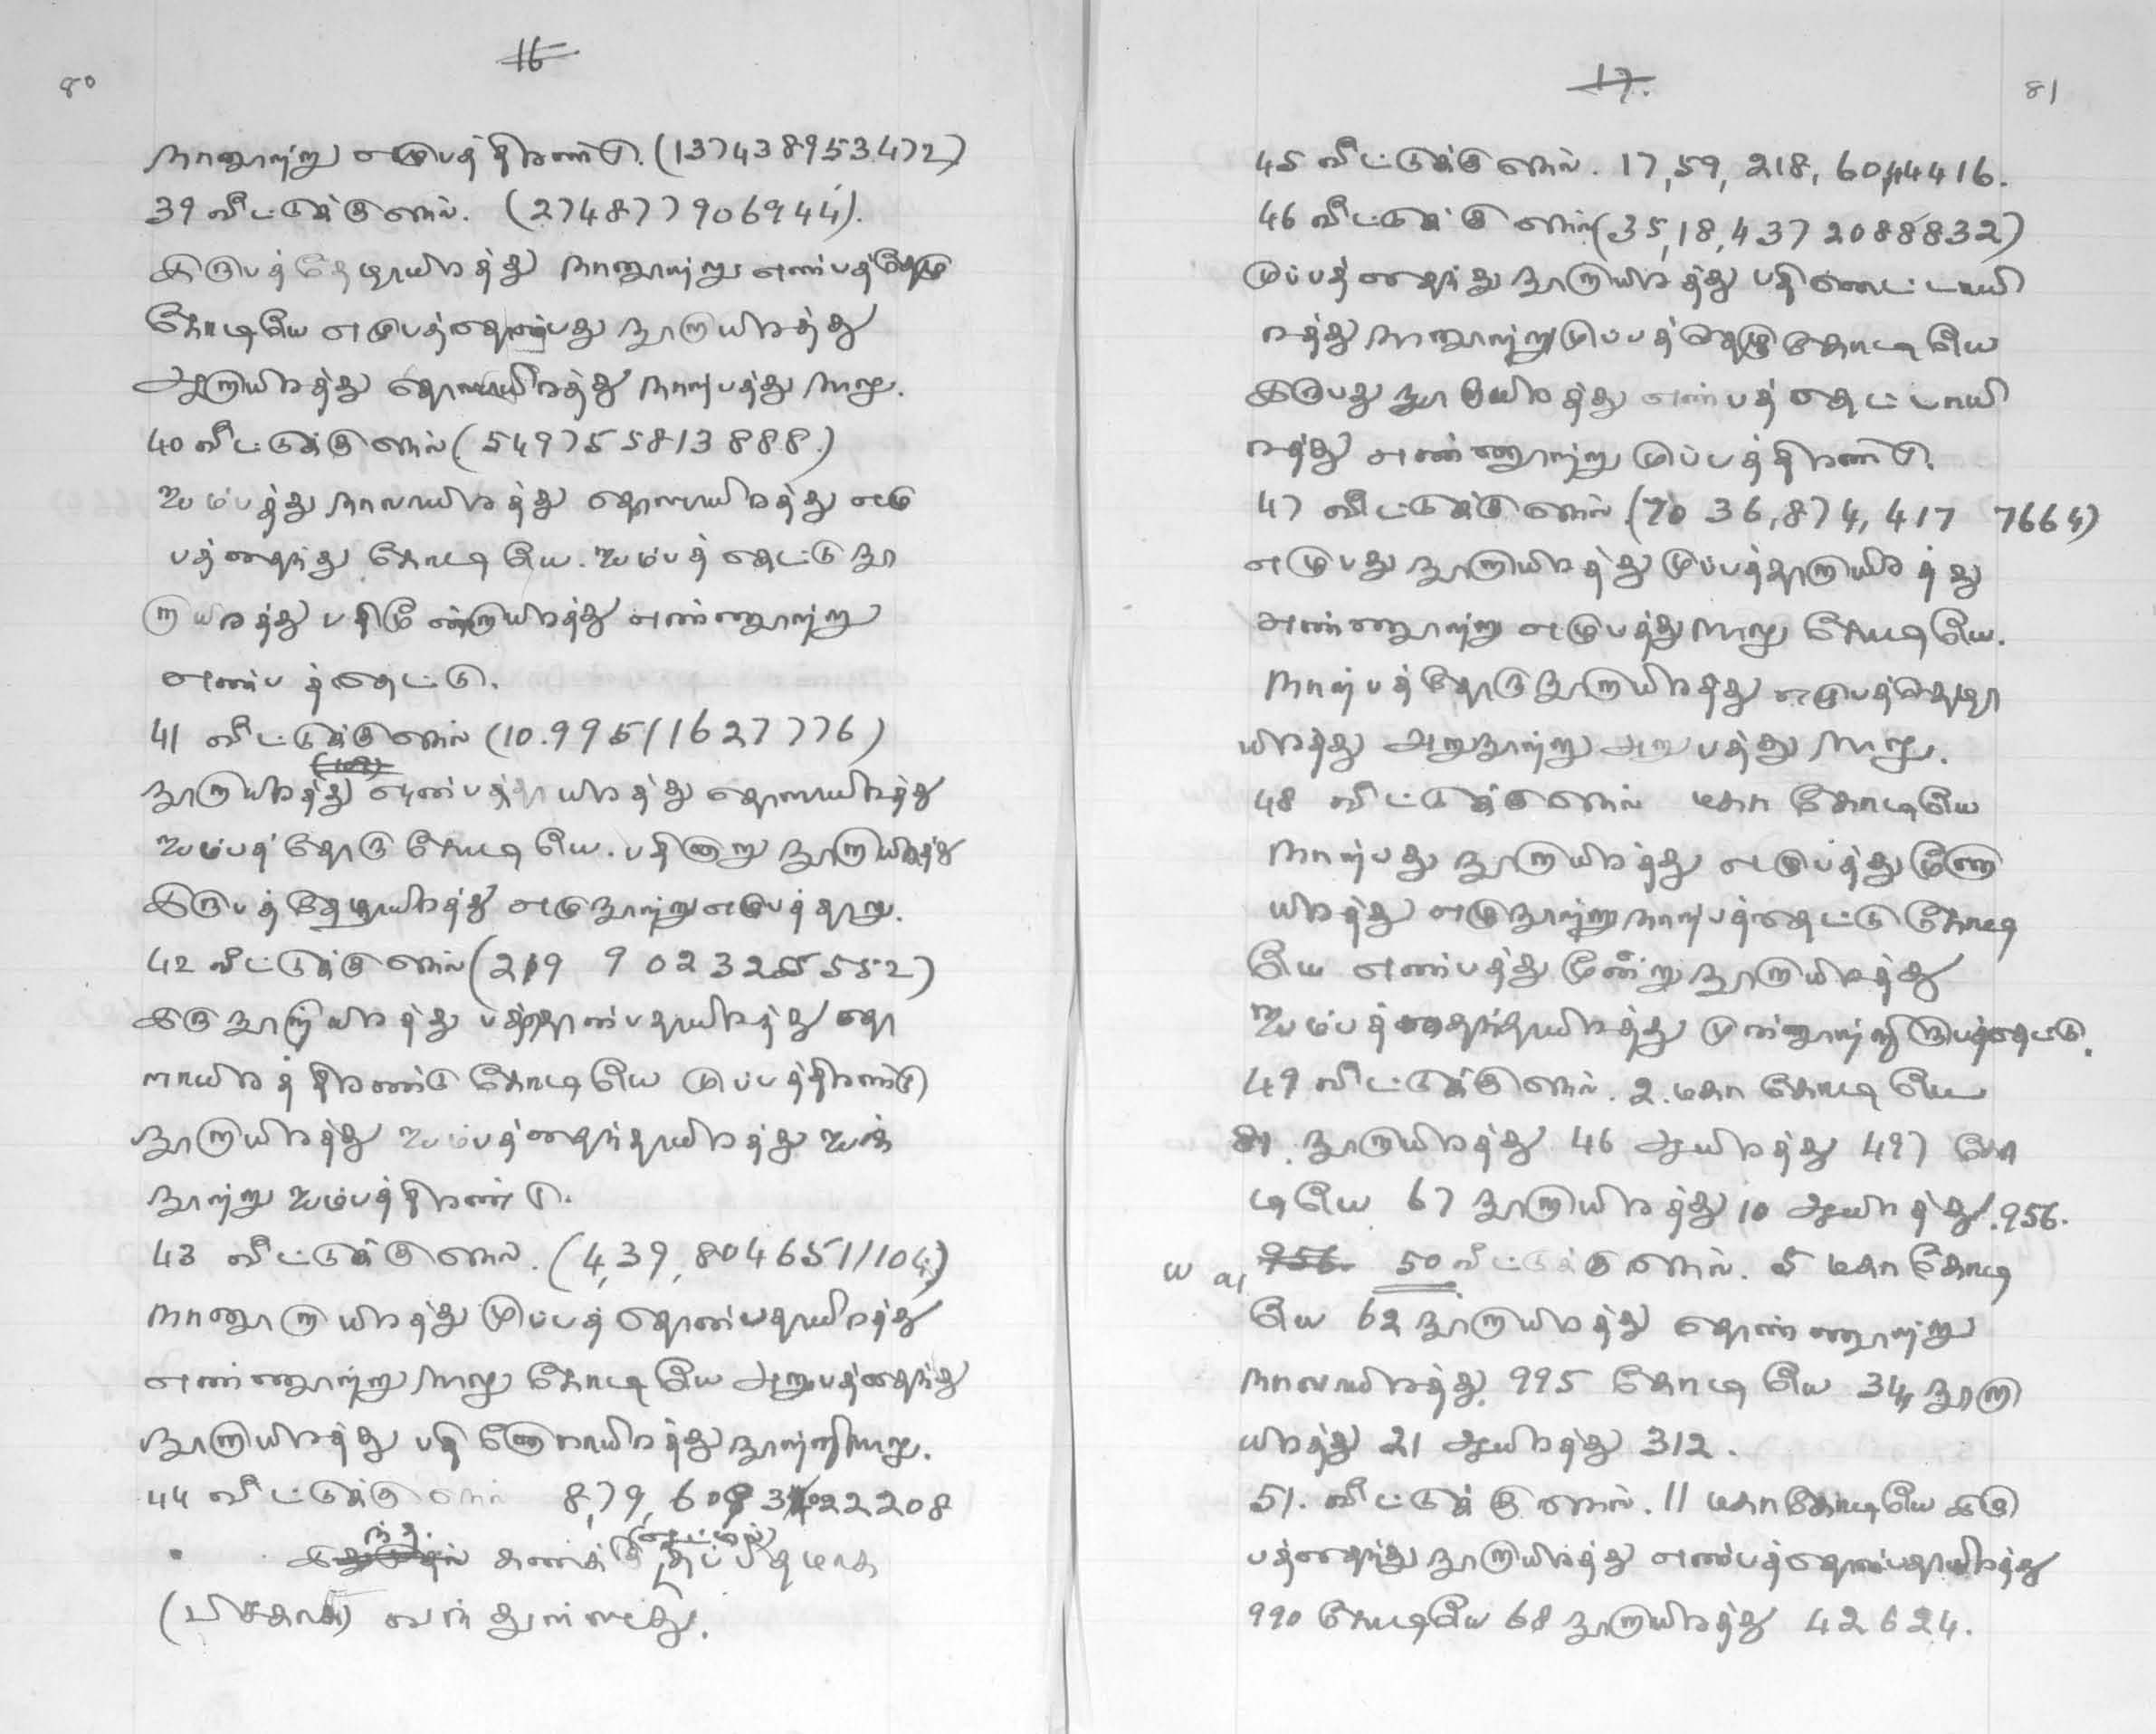 16
80
நானூற்று எழுபத்திரண்டு. (137438953472)
39 வீட்டுக்கு நெல். (274877906944).
இருபத்தேழாயிரத்து நானூற்று எண்பத்தேழு
கோடியே எழுபத்தொன்பது நூறாயிரத்து
ஆறாயிரத்து தொளாயிரத்து நாற்பத்து நாலு.
40 வீட்டுக்கு நெல் (549755813888.)
ஐம்பத்து நாலாயிரத்து தொளாயிரத்து எழு
பத்தைந்து கோடியே. ஐம்பத்தெட்டு நூ
றாயிரத்து பதிமூன்றாயிரத்து எண்ணூற்று
எண்பத்தெட்டு.
41 வீட்டுக்கு நெல் (10.99511627776)
நூறாயிரத்து ஒன்பத்தாயிரத்து தொளாயிரத்து
ஐம்பத்தோரு கோடியே. பதினாறு நூறாயிரத்து
இருபத்தேழாயிரத்து எழுநூற்று எழுபத்தாறு.
42 வீட்டுக்கு நெல் (219 9023255552)
இருநூறாயிரத்து பத்தொன்பதாயிரத்து தொ
ளாயிரத்திரண்டு கோடியே முப்பத்திரண்டு
நூறாயிரத்து ஐம்பத்தைந்தாயிரத்து ஐந்
நூற்று ஐம்பத்திரண்டு.
43 வீட்டுக்கு நெல். (4,39,8046511104)
நானூறாயிரத்து முப்பத்தொன்பதாயிரத்து
எண்ணூற்று நாலு கோடியே அறுபத்தைந்து
நூறாயிரத்து பதினோராயிரத்து நூற்றிநாலு.
44 வீட்டுக்கு நெல் 8,79,609 3022208
கணக்கு தப்பிதமாக
(பிசகாக) வந்துள்ளது.
17.
81
45 வீட்டுக்கு நெல். 17,59,218,6044416.
46 வீட்டுக்கு நெல் (35,18,437 2088832)
முப்பத்தைந்து நூறாயிரத்து பதினெட்டாயி
ரத்து நானூற்று முப்பத்தெழு கோடியே
இருபது நூறாயிரத்து எண்பத்தெட்டாயி
ரத்து எண்ணூற்று முப்பத்திரண்டு.
47 வீட்டுக்கு நெல். (70 36,874,417 7664)
எழுபது நூறாயிரத்து முப்பத்தாறாயிரத்து
எண்ணூற்று எழுபத்து நாலு கோடியே.
நாற்பத்தோரு நூறாயிரத்து எழுபத்தெழா
யிரத்து அறுநூற்று அறுபத்து நாலு.
48 வீட்டுக்கு நெல் மகா கோடியே
நாற்பது நூறாயிரத்து எழுபத்து மூணா
யிரத்து எழுநூற்று நாற்பத்தெட்டு கோடி
யே எண்பத்து மூன்று நூறாயிரத்து
ஐம்பத்தைந்தாயிரத்து முன்னூற்றிருபத்தெட்டு.
49 வீட்டுக்கு நெல். 2. மகா கோடியே
81. நூறாயிரத்து 46 ஆயிரத்து 497 கோ
டியே 67 நூறாயிரத்து 10 ஆயிரத்து.956.
956. 50 வீட்டுக்கு நெல். 5 மகா கோடி
யே 62 நூறாயிரத்து தொண்ணூற்று
நாலாயிரத்து. 995 கோடியே 34,, நூறா
யிரத்து 21 ஆயிரத்து 312.
51. வீட்டுக்கு நெல். 11 மகா கோடியே இரு
பத்தைந்து நூறாயிரத்து எண்பத்தொன்பதாயிரத்து
990 கோடியே 68 நூறாயிரத்து 42624.